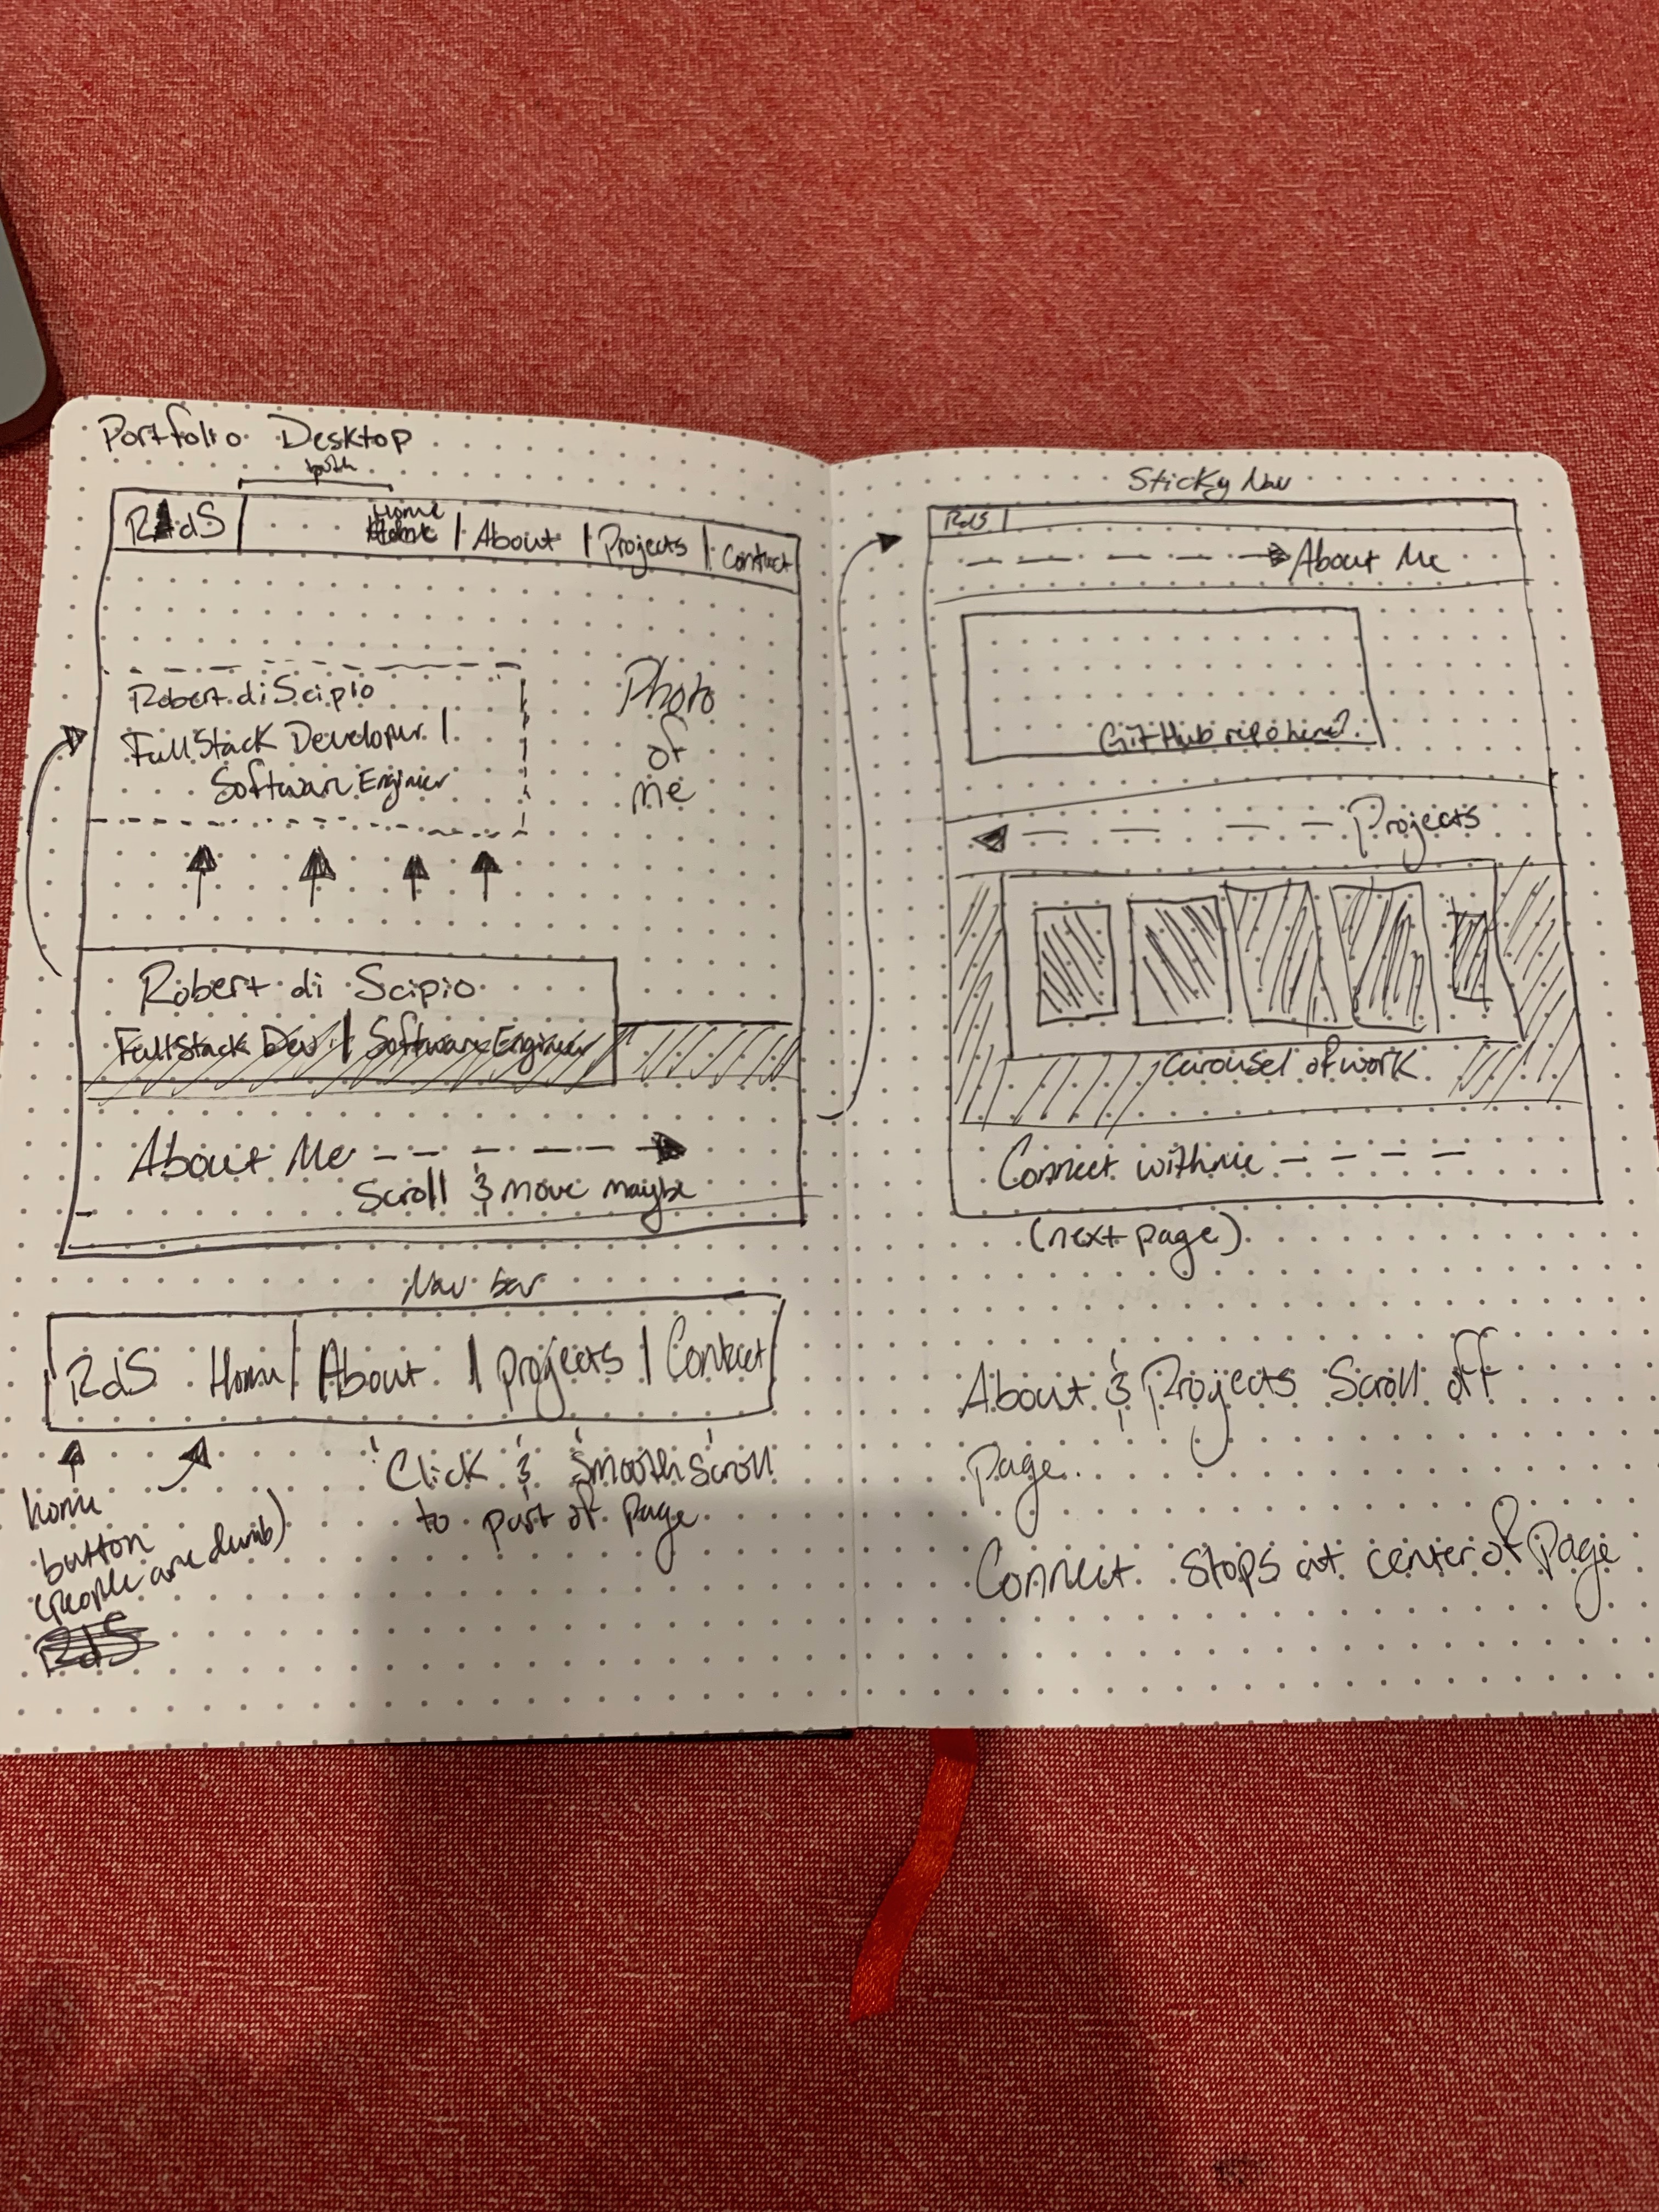 Portfolio Desktop
both
RdS
Home
| About | Projects | Contact
Robert di Scipio
FullStack Developer |
Software Engineer
Photo
of
me
Robert di Scipio
FullStack Dev | Software Engineer
About Me
Scroll & move maybe
Nav bar
RdS Home | About | Projects | Contact
home
button
(people are dumb)
RdS
Click & Smooth scroll
to part of page
Sticky Nav
RdS |
About Me
GitHub repo here?
Projects
Carousel of work
Connect with me
(next page)
About & Projects Scroll off
Page.
Connect stops at center of Page